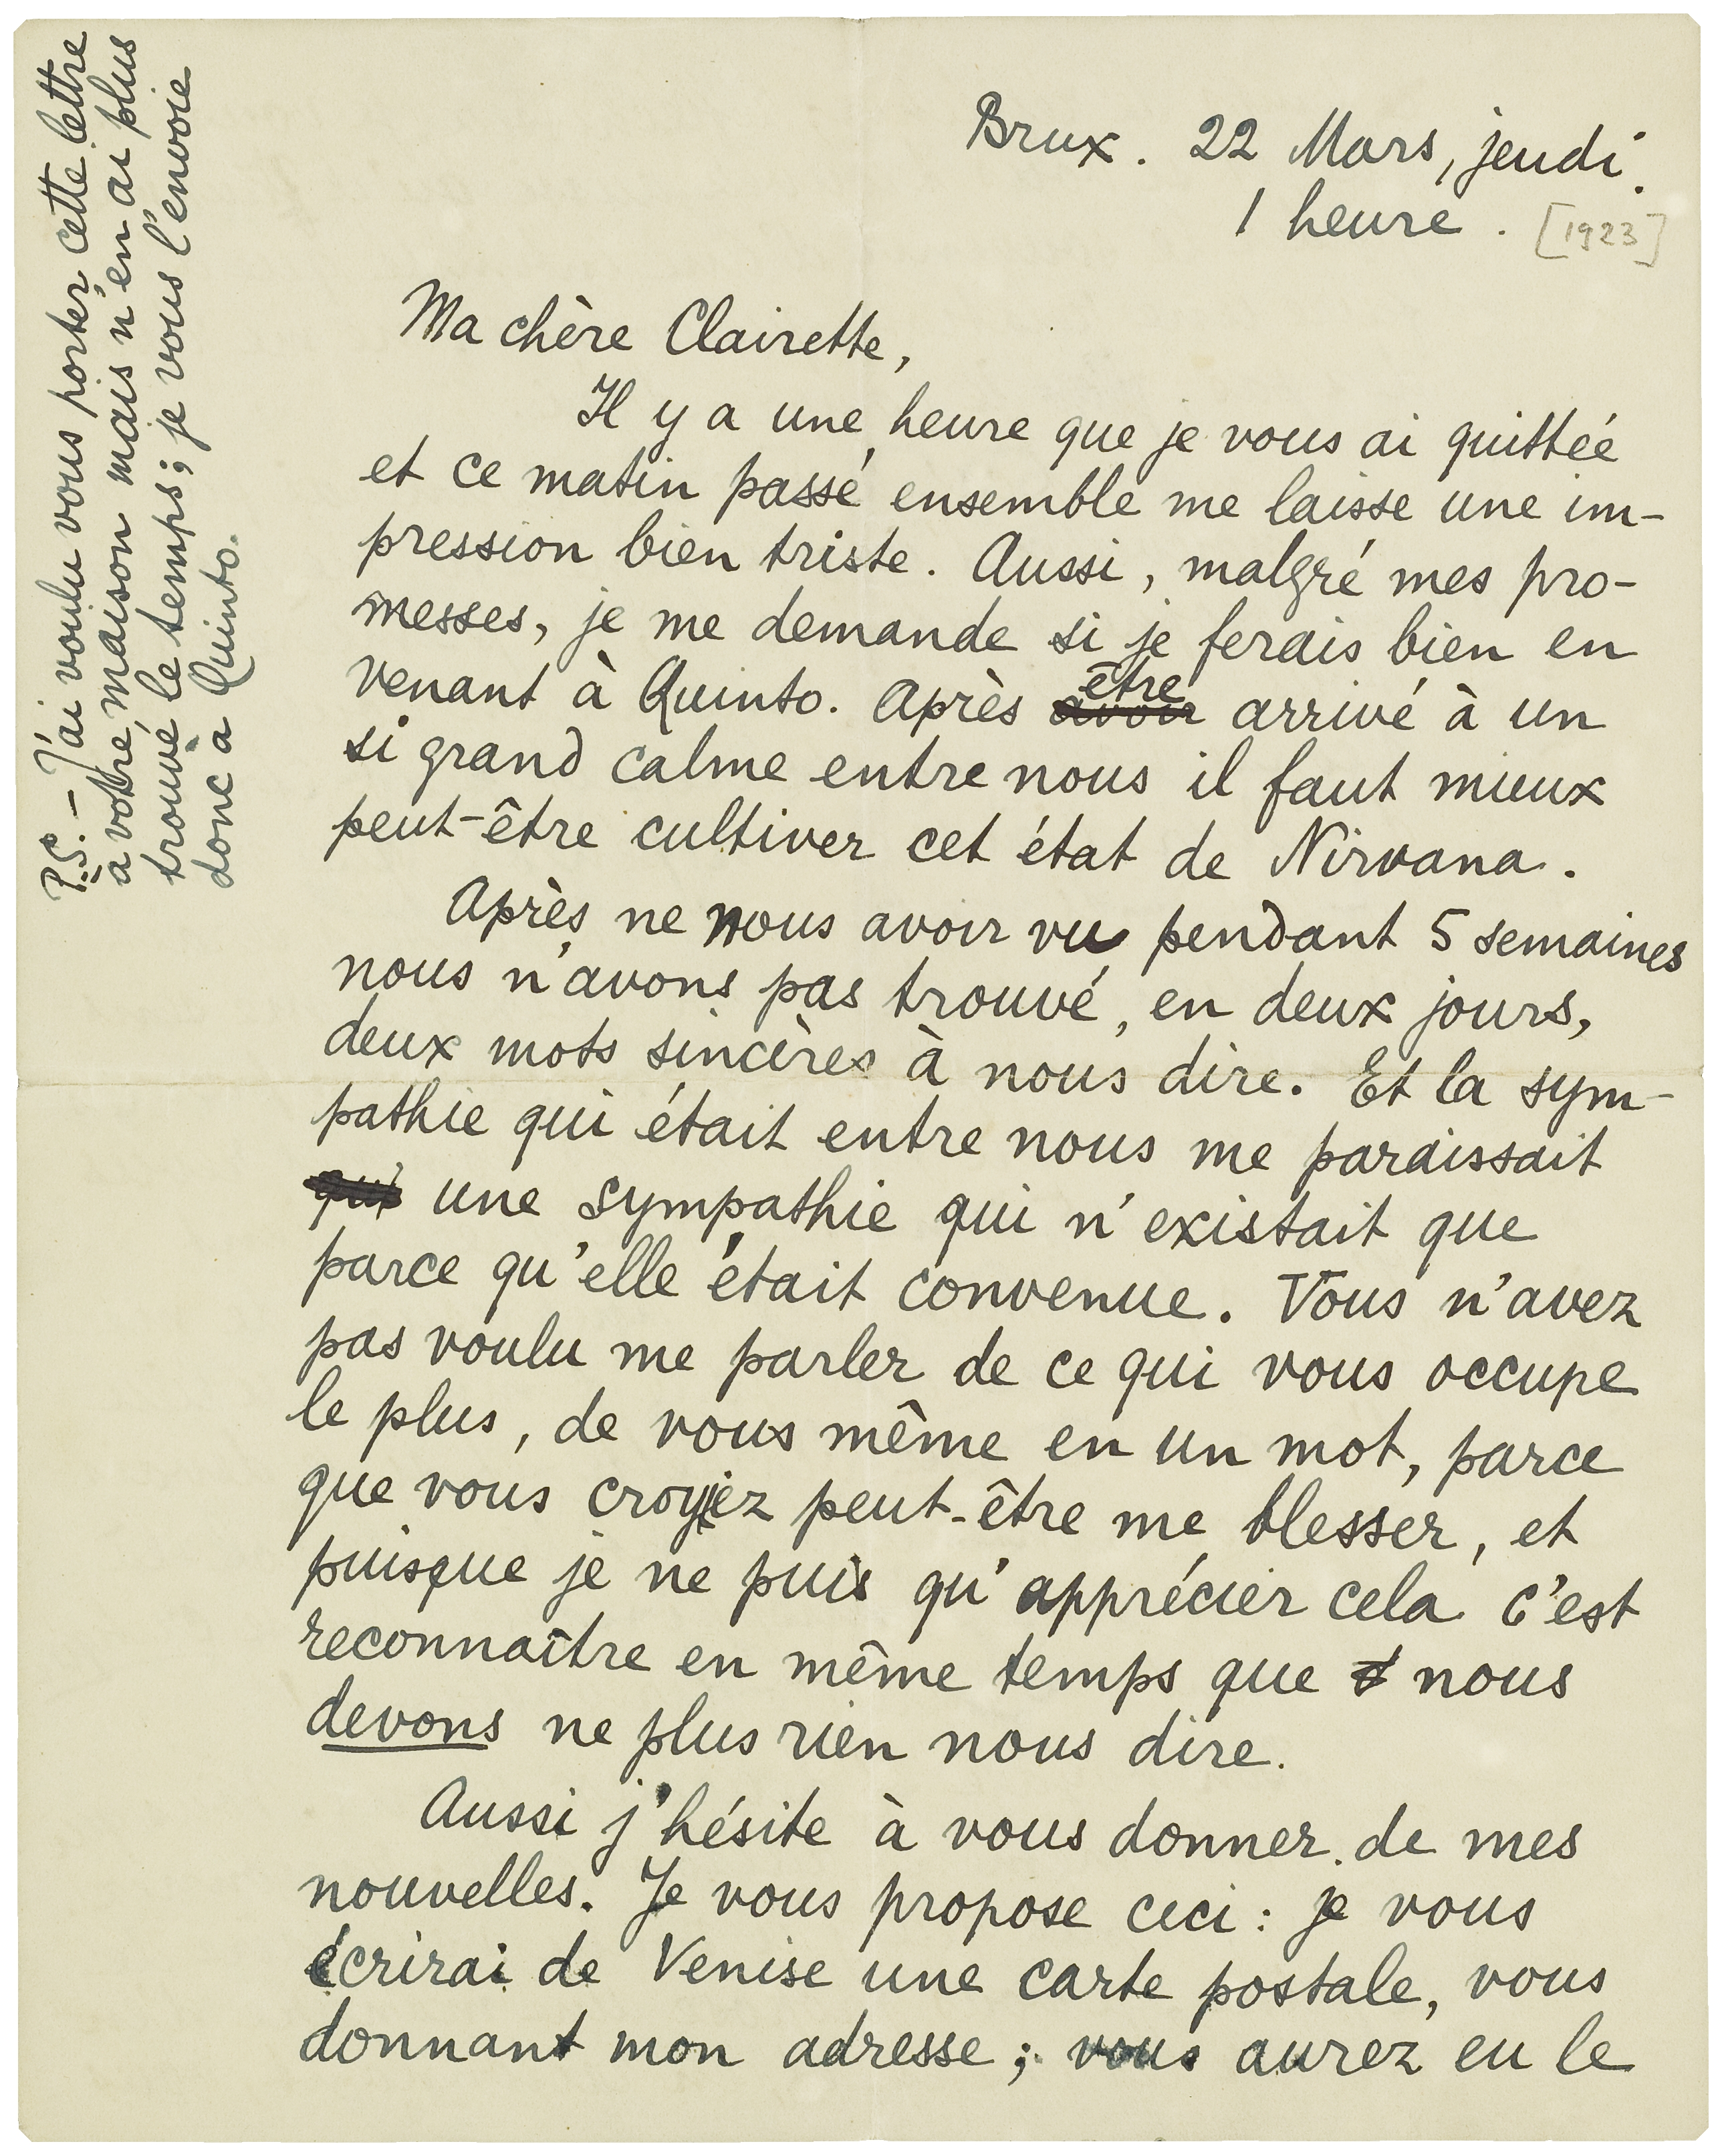 Brux. 22 Mars, jeudi.
1 heure. [1923]
Ma chère Clairette,
Il y a une heure que je vous ai quittée
et ce matin passé ensemble me laisse une im-
pression bien triste. Aussi, malgré mes pro-
messes, je me demande si je ferais bien en
venant à Quinto. Après avoir être arrivé à un
si grand calme entre nous il faut mieux
peut-être cultiver cet état de Nirvana.
Après ne nous avoir vu pendant 5 semaines
nous n'avons pas trouvé, en deux jours,
deux mots sincères à nous dire. Et la sym-
pathie qui était entre nous me paraissait
qui une sympathie qui n'existait que
parce qu'elle était convenue. Vous n'avez
pas voulu me parler de ce qui vous occupe
le plus, de vous même en un mot, parce
que vous croyiez peut-être me blesser, et
puisque je ne puis qu'apprécier cela c'est
reconnaître en même temps que nous
devons ne plus rien nous dire.
Aussi j'hésite à vous donner de mes
nouvelles. Je vous propose ceci : je vous
écrirai de Venise une carte postale, vous
donnant mon adresse ; vous aurez eu le
P.S. – J'ai voulu vous porter cette lettre
à votre maison mais n'en ai plus
trouvé le temps ; je vous l'envoie
donc à Quinto.